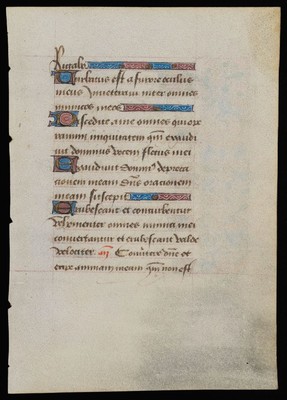 Rigabo
Turbatus est a furore oculus
meus inveteravi inter omnes
inimicos meos
Discedite a me omnes qui ope
ramini iniquitatem qm̄ exaudi
vit dominus vocem fletus mei
Exaudivit domin⁹ depreca
cionem meam dn̄s orationem
meam suscepit
Erubescant et conturbentur
vehementer omnes inimici mei
convertantur et erubescant valde
velociter an̄ Convertere dn̄e et
eripe animam meam qm̄ non est